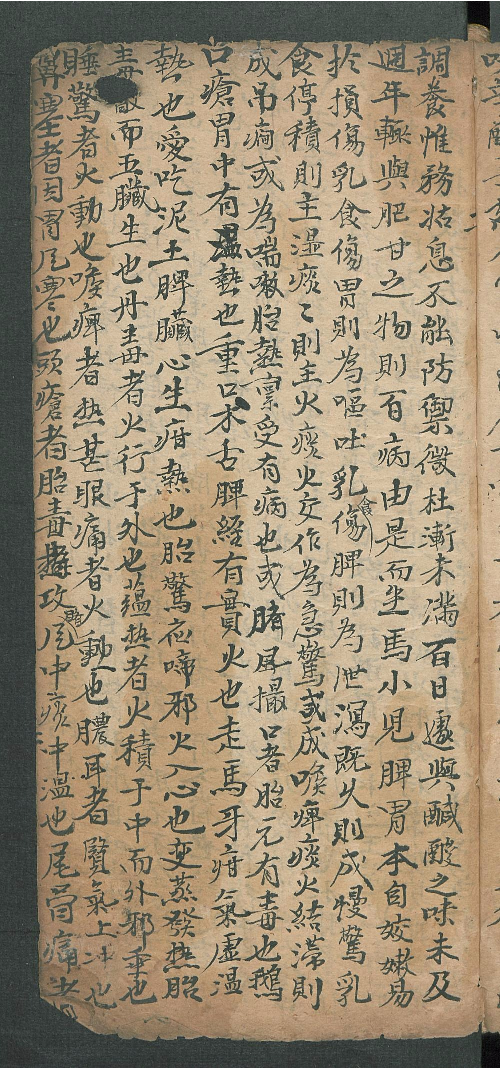 調養惟務姑息不能防禦微杜漸未滿百日遽與醎酸之味未及
週年輒與肥甘之物則百病由是而生焉小兒脾胃本自姣嫩易
扵損傷乳食傷胃則為嘔吐乳食傷脾則為泄瀉既久則成慢驚乳
食停積則主湿痰〻則主火痰火交作為急驚或成喉痺痰火結滞則
成吊癎或為喘嗽胎熱禀受有病也或臍風撮口者胎元有毒也鵝
口瘡胃中有湿熱也重口木舌脾經有實火也走馬牙疳氣虚温
熱也愛吃泥土脾臟心生疳熱也胎驚夜啼邪火入心也变蒸發热胎
毒散而五臟生也丹毒者火行于外也蕴热者火積于中而外邪乗也
睡驚者火動也喉痺者热甚眼痛者火動也膿耳者賢氣上冲也
鼻塞者因胃風寒也頭瘡者胎毒攻臍風中痰中温也尾骨痛者